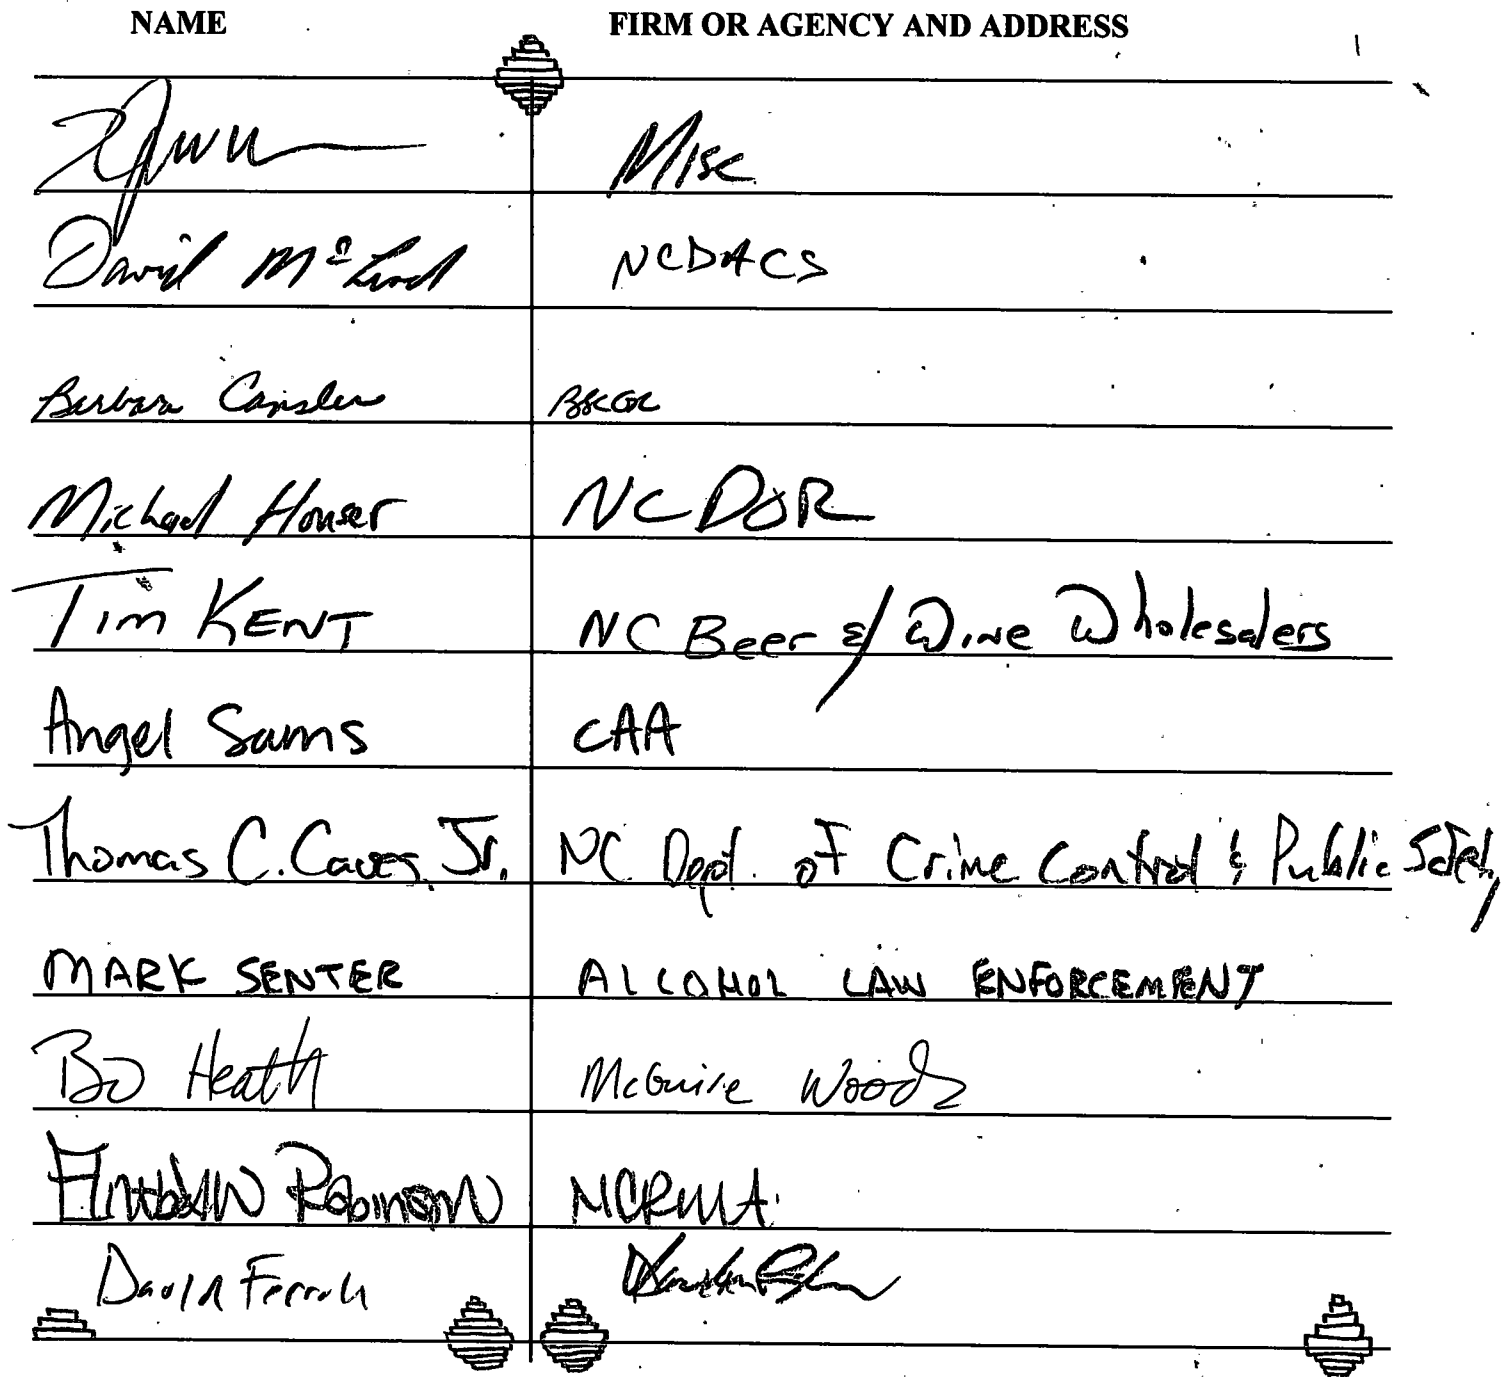 NAME FIRM OR AGENCY AND ADDRESS
Misc
David McLeod NCDACS
Barbara Cansler
Michael Houser NCDOR
Tim KENT NC Beer & Wine Wholesalers
Angel Sams CAA
Thomas C. Caves, Jr. NC Dept. of Crime Control & Public Safety
MARK SENTER ALCOHOL LAW ENFORCEMENT
Bo Heath McGuire Woods
Robinson NCRMA
David Ferrell